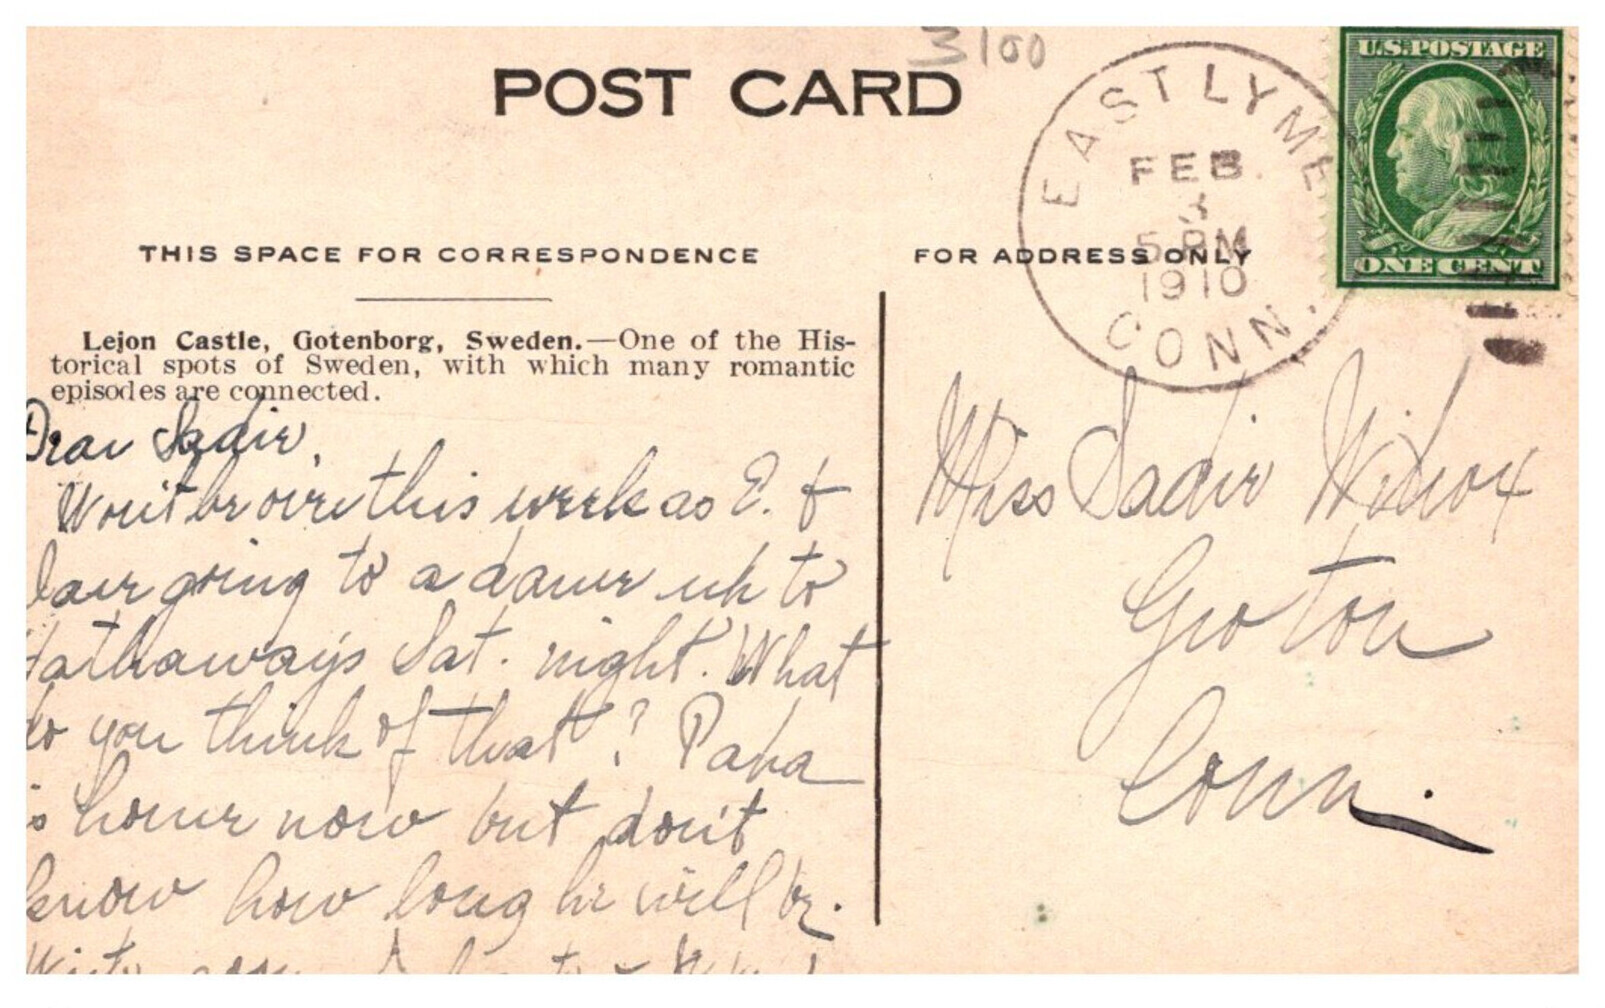 3100
POST CARD
EAST LYME
FEB.
3
5 PM
1910
CONN.
U.S. POSTAGE
ONE CENT
THIS SPACE FOR CORRESPONDENCE
FOR ADDRESS ONLY
Lejon Castle, Gotenborg, Sweden.—One of the His-
torical spots of Sweden, with which many romantic
episodes are connected.
Dear Sadie,
Won't be over this week as E. &
I are going to a dance up to
Hathaway's Sat. night. What
do you think of that? Papa
is home now but don't
know how long he will be.
Write soon
Miss Sadie Wilcox
Groton
Conn.